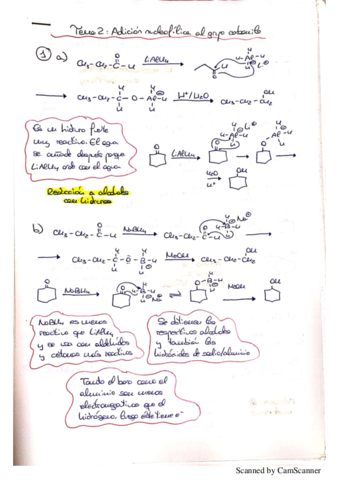 Tema 2: Adición nucleofílica al grupo carbonilo
1 a) CH3-CH2-C-H LiAlH4
CH3-CH2-C-O-Al-H H+/H2O CH3-CH2-CH2
OH
Es un hidruro fuerte
muy reactivo. El agua
se añade después porque
LiAlH4 arde con el agua
LiAlH4
H2O
H+
OH
Reducción a alcoholes
con hidruros
b) CH3-CH2-C-H NaBH4 CH3-CH2-C-H
CH3-CH2-C-O-B-H MeOH CH3-CH2-CH2
OH
NaBH4
MeOH
OH
NaBH4 es menos
reactivo que LiAlH4
y se usa con aldehídos
y cetonas más reactivos
Se obtienen los
respectivos alcoholes
y también los
hidróxidos de sodio/aluminio
Tanto el boro como el
aluminio son menos
electronegativos que el
hidrógeno, luego este tiene e-
Scanned by CamScanner